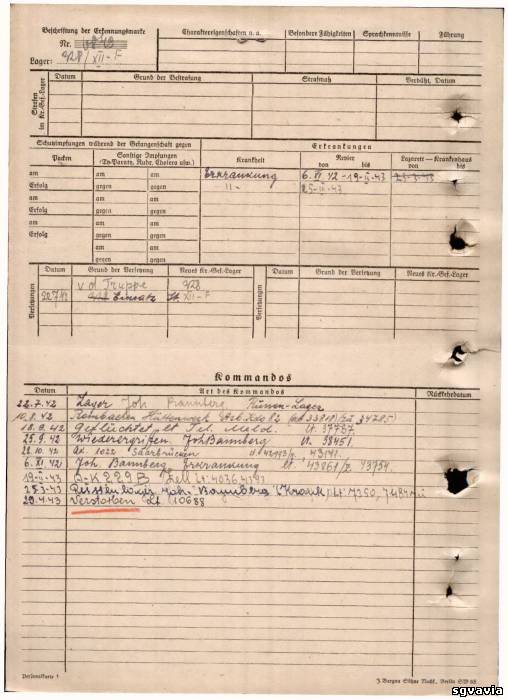 Beschriftung der Erkennungsmarke
Nr.
Lager: 928/XII-F
Charaktereigenschaften u. a.
Besondere Fähigkeiten
Sprachkenntnisse
Führung
Strafen im Kr.-Gef.-Lager
Datum
Grund der Bestrafung
Strafmaß
Verbüßt, Datum
Schutzimpfungen während der Gefangenschaft gegen
Erkrankungen
Pocken
Sonstige Impfungen
(Ty-Paraty, Ruhr, Cholera usw.)
Krankheit
Revier
von bis
Lazarett — Krankenhaus
von bis
am am am
Erfolg gegen gegen
am am am
Erfolg gegen gegen
am am am
Erfolg gegen gegen
am am
gegen gegen
Erkrankung 6.XI.42-19-II-43 25-3-43
II- 25-III-43
Versetzungen
Datum
Grund der Versetzung
Neues Kr.-Gef.-Lager
Versetzungen
Datum
Grund der Versetzung
Neues Kr.-Gef.-Lager
v. d Truppe 928
Einsatz St XII-F
Kommandos
Datum
Art des Kommandos
Rückkehrdatum
22.7.42 Lager Joh Bannberg Russen-Lager
10.8.42 Rombacher Hüttenwerk Arb. Kdo 82
18.9.42 Geflüchtet lt Tel. Meld. Lt. 37757
25.9.42 Wiederergriffen. Joh Bannberg Lt. 38451
28.10.42 Ak. 1022 Saarbrücken 43141.
6.XI.42 Joh. Bannberg Erkrankung lt. 43861/z. 43754.
19-II-43 A-K 229 B Zell Lt. 4036
25-3-43 Russenlager Joh. Bannberg (Krank) Lt. 7350,
29.4.43 Verstorben Lt 10688
Personalkarte I
J. Bargou Söhne Nachf., Berlin SW 68.
sgvavia